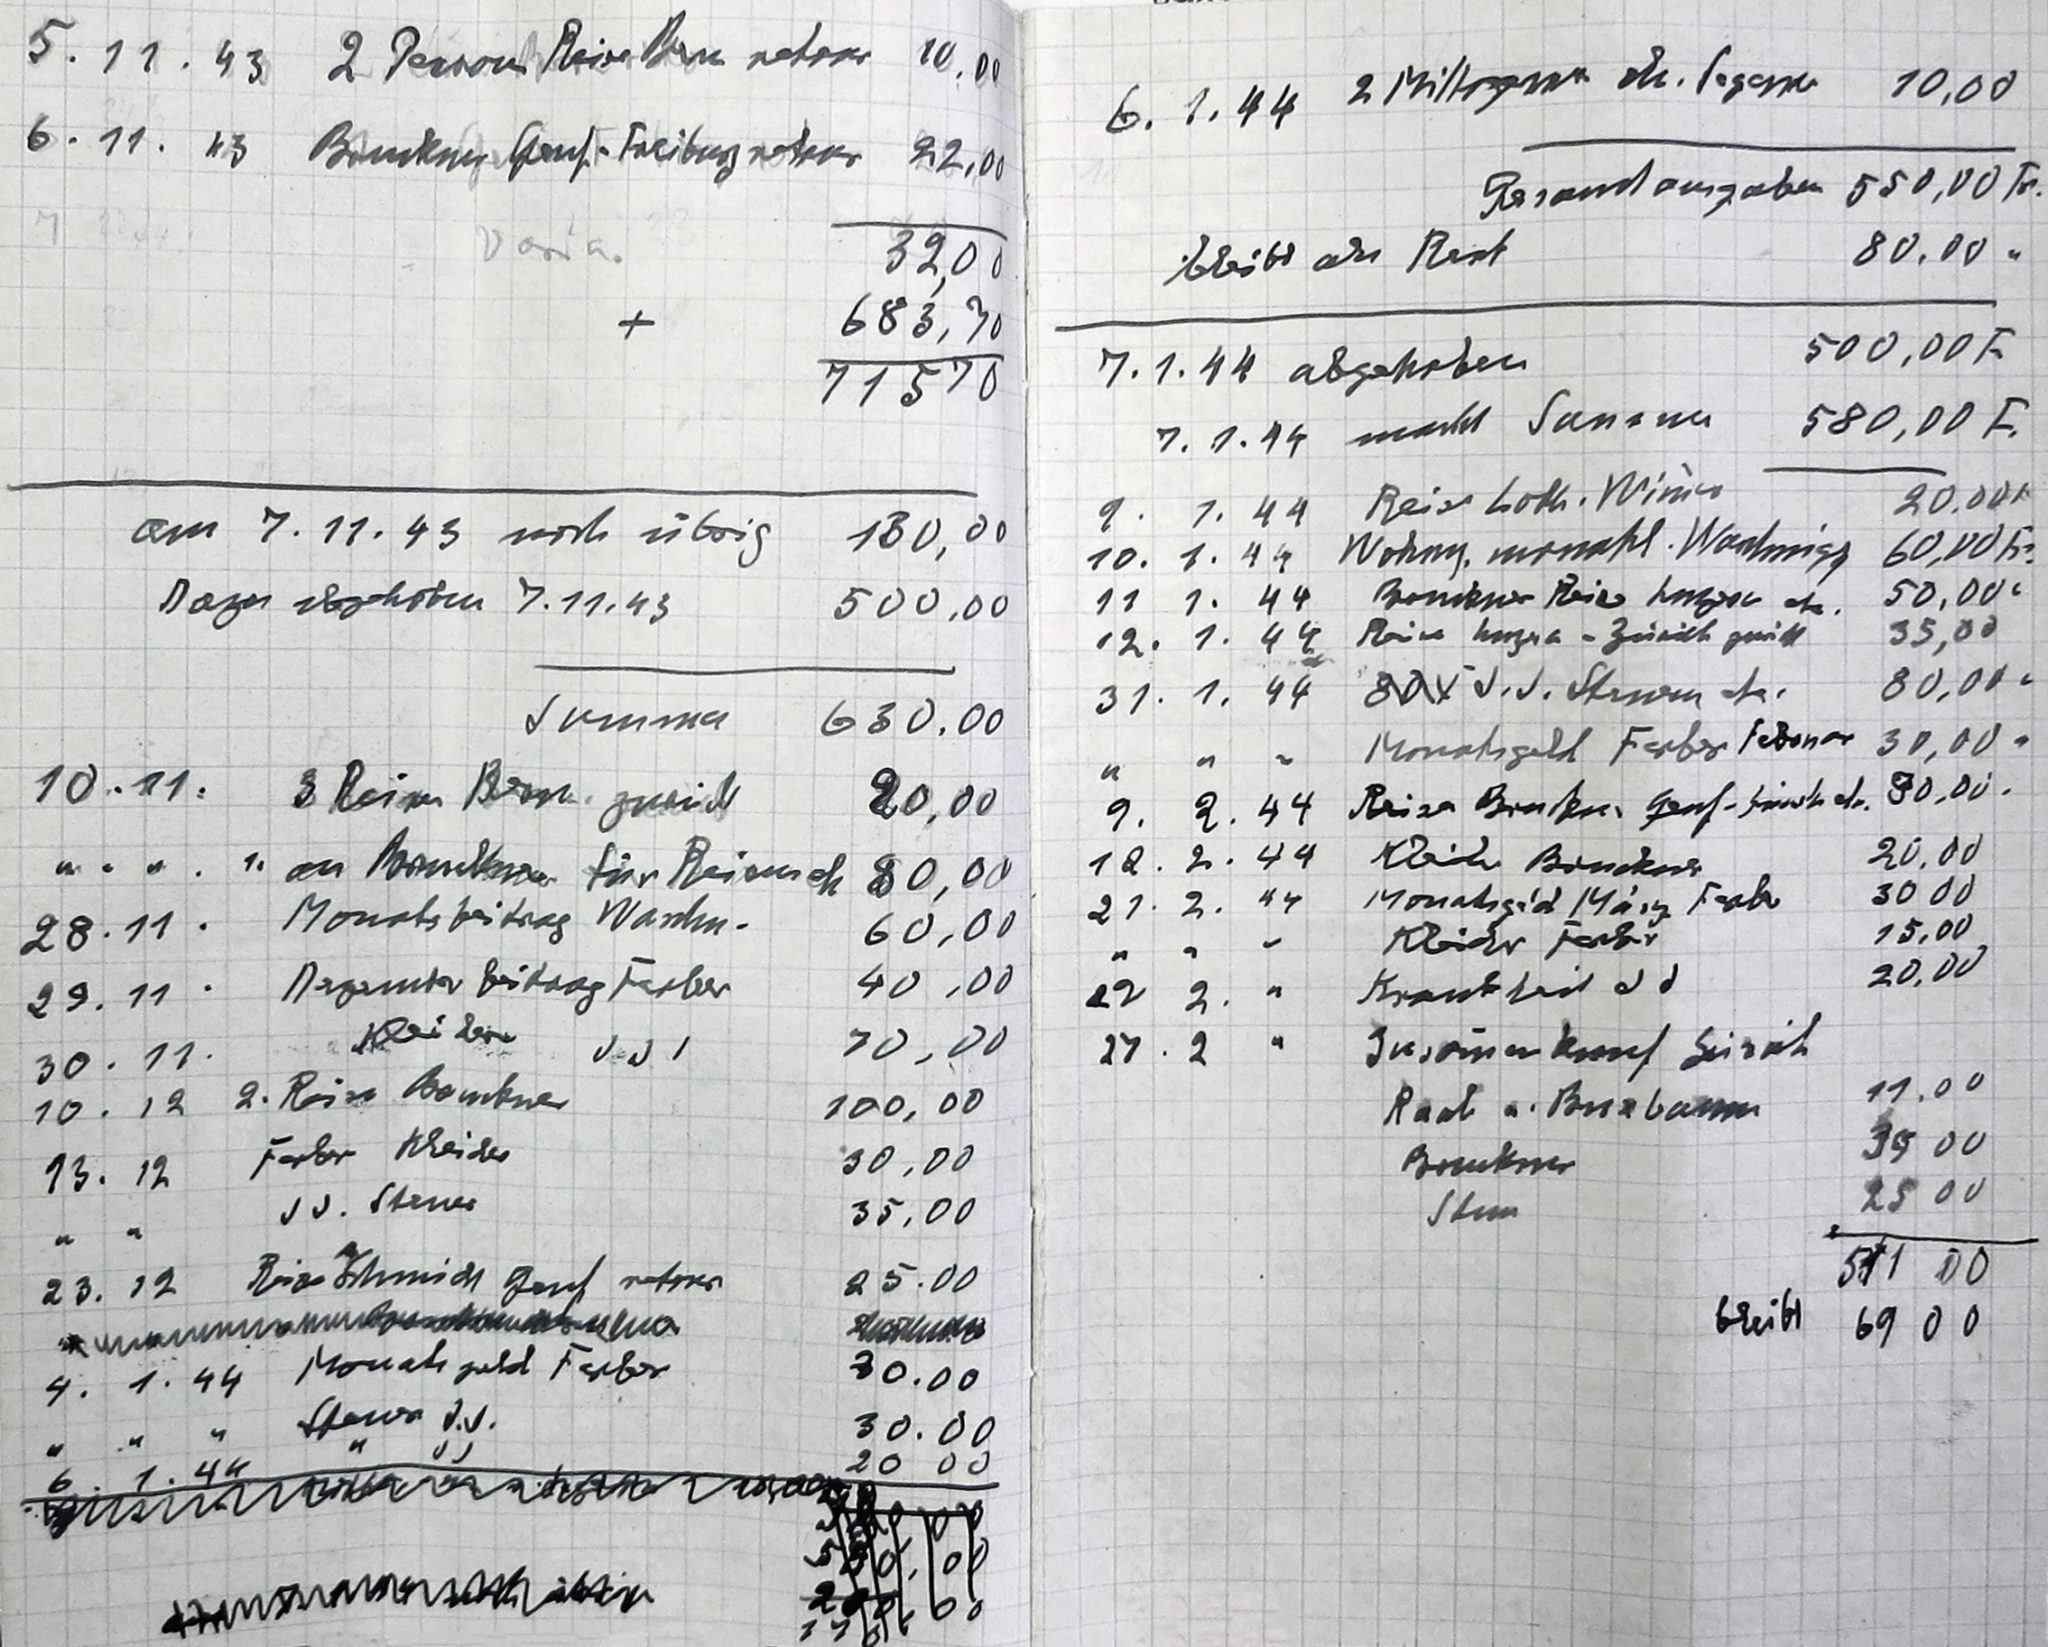 5. 11. 43 2 Person Reise Bern retour 10,00
6. 11. 43 Bruckner Genf-Freiburg retour 22,00
Varia.
32,00
+ 683,70
71570
am 7. 11. 43 noch übrig 130,00
Dazu abgehoben 7.11.43 500,00
Summa 630.00
10. 11. 3 Reisen Bern. zurück 20,00
" " " . 1. an Bruckner für Reisen 80,00
28. 11. Monatsbeitrag Waschn. 60,00
29. 11. Dezember beitrag Ferber 40,00
30. 11. Kleider 70,00
10. 12 2. Reise Bruckner 100,00
13. 12 Ferber Kleider 30,00
" " J J. Steuer 35,00
23. 12 Reise Schmidt Genf retour 25.00
4. 1. 44 Monatsgeld Ferber 30.00
" " " Steuer J.J. 30.00
6. 1. 44 " JJ 20 00
6. 1. 44 2 10,00
Gesamtausgaben 550,00 Fr.
bleibt als Rest 80.00 "
7. 1. 44 abgehoben 500,00 F.
7. 1. 44 macht Summa 580,00 F.
9. 1. 44 Reise 20.00
10. 1. 44 Wohng. monatl. 60,00 Fr.
11 1. 44 Bruckner Reise Luzern etc. 50,00 "
12. 1. 44 Reise Luzern - Zürich zurück 35,00
31. 1. 44 J.J. etc. 80,00 "
" " " Monatsgeld Ferber Februar 30,00 "
9. 2. 44 Reise Bruckner Genf-Zürich etc. 80,00.
12. 2. 44 Kleider Bruckner 20,00
21. 2. 44 Monatsgeld März Ferber 30 00
" " " Kleider Ferber 15,00
22 2. " Krankheit J J 20.00
27. 2 " Zusammenkunft Zürich
Rad u. Buxbaum 11.00
Bruckner 35 00
25 00
511 00
bleibt 69 00